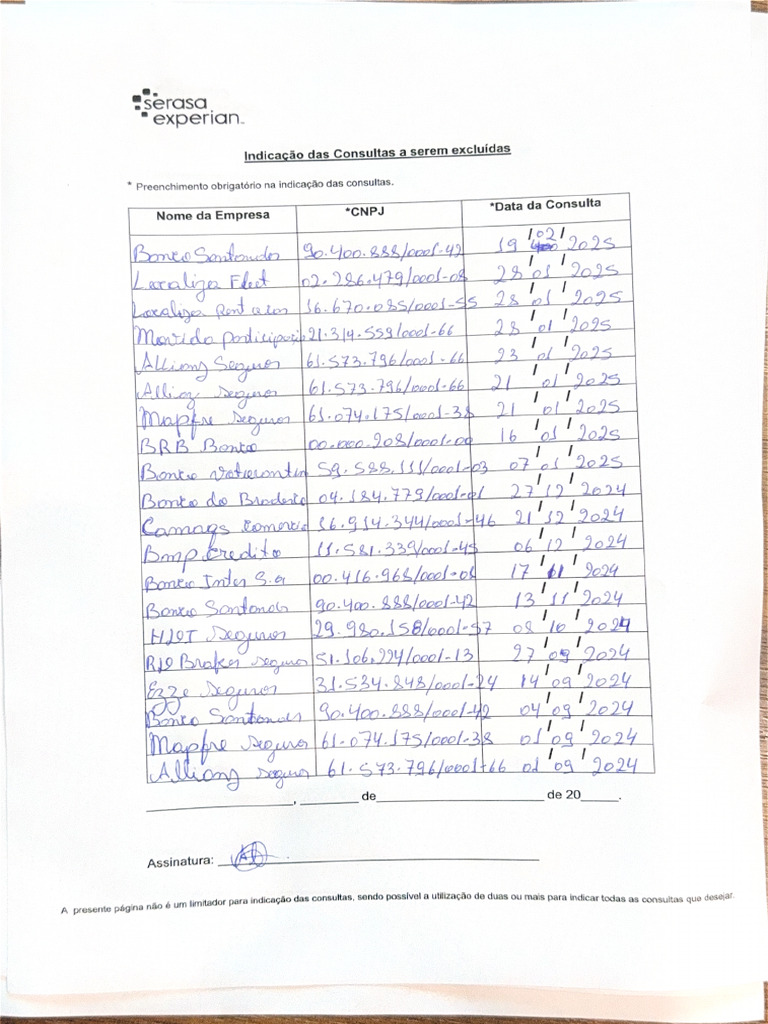 serasa
experian
Indicação das Consultas a serem excluídas
* Preenchimento obrigatório na indicação das consultas.
Nome da Empresa *CNPJ *Data da Consulta
Banco Santander 90.400.888/0001-42 19/02/2025
Localiza Fleet 02.286.479/0001-08 28/01/2025
Localiza Rent 16.670.085/0001-55 28/01/2025
Movida participações 21.314.559/0001-66 28/01/2025
Allianz Seguros 61.573.796/0001-66 23/01/2025
Allianz Seguros 61.573.796/0001-66 21/01/2025
Mapfre Seguros 61.074.175/0001-38 21/01/2025
BRB Banco 00.000.208/0001-00 16/01/2025
Banco Votorantim 59.588.111/0001-03 07/01/2025
Banco do 04.184.779/0001-01 27/12/2024
Camaqs Comercio 16.914.344/0001-46 21/12/2024
Bmp Credito 11.581.339/0001-45 06/12/2024
Banco Inter S.a 00.416.968/0001-01 17/11/2024
Banco Santander 90.400.888/0001-42 13/11/2024
Seguros 29.980.158/0001-57 08/10/2024
Seguros 51.106.224/0001-13 27/09/2024
Ezze Seguros 31.534.848/0001-24 14/09/2024
Banco Santander 90.400.888/0001-42 04/09/2024
Mapfre Seguros 61.074.175/0001-38 01/09/2024
Allianz Seguros 61.573.796/0001-66 01/09/2024
____________, ________ de ____________ de 20_____.
Assinatura:
A presente página não é um limitador para indicação das consultas, sendo possível a utilização de duas ou mais para indicar todas as consultas que desejar.